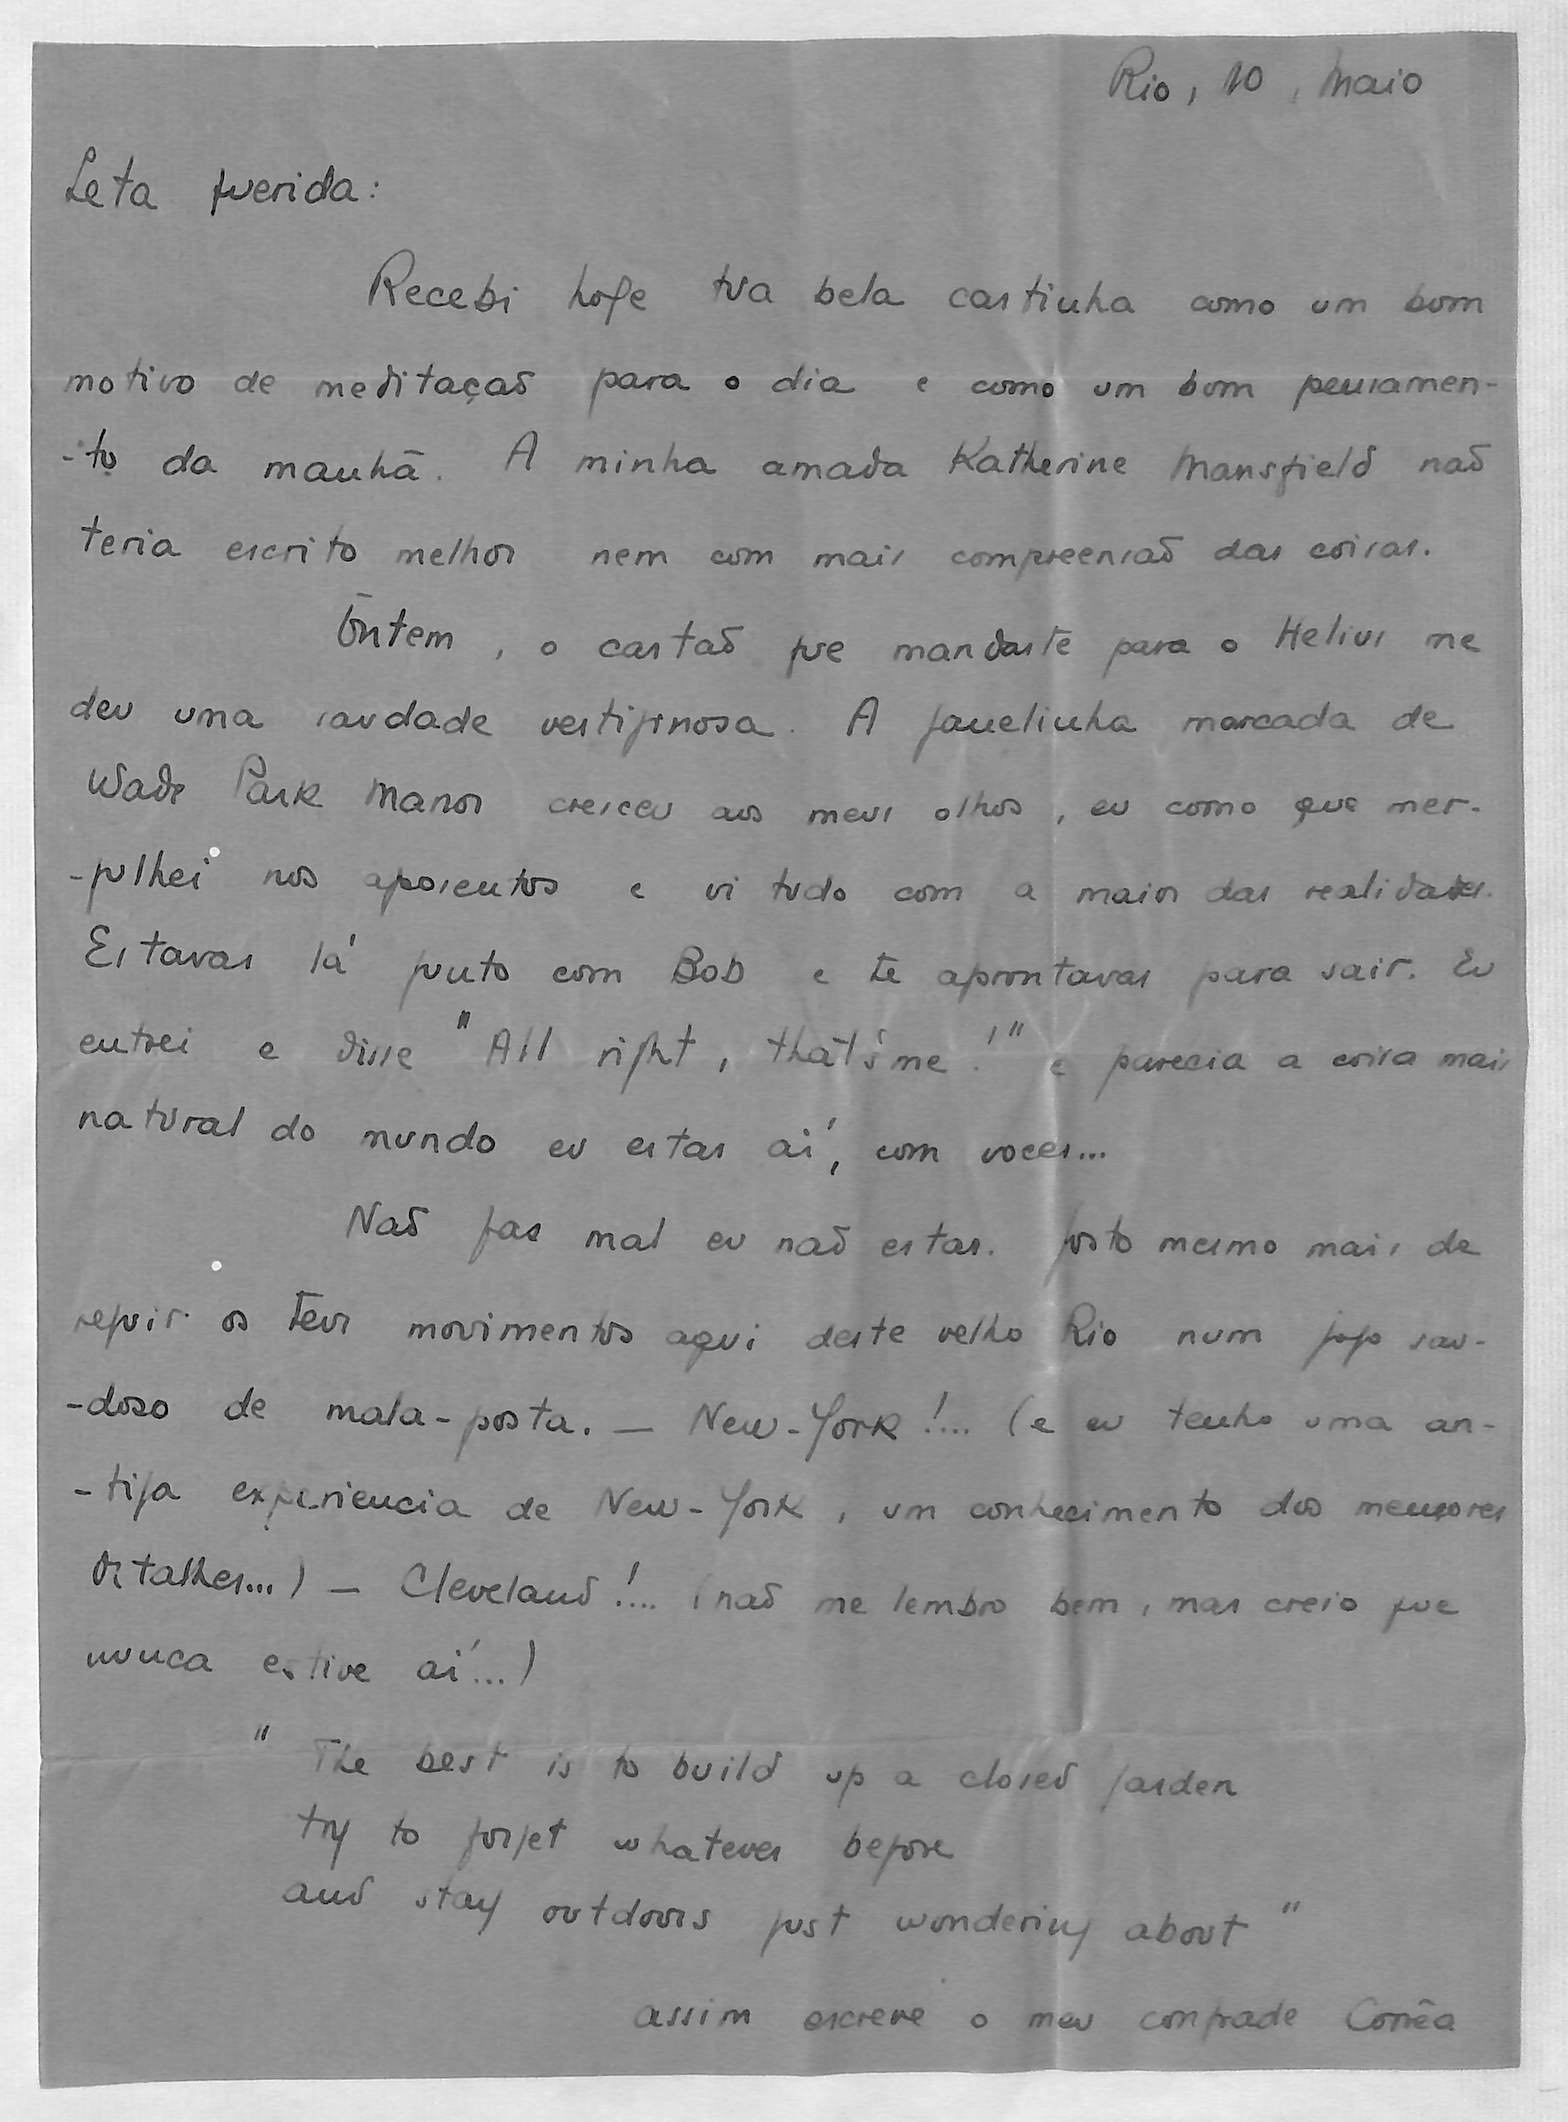 Rio, 10, Maio
Leta querida:
Recebi hoje tua bela cartinha como um bom
motivo de meditação para o dia e como um bom pensamen-
-to da manhã. A minha amada Katherine Mansfield não
teria escrito melhor nem com mais compreensão das coisas.
Ontem, o cartão que mandaste para o Helius me
deu uma saudade vertiginosa. A janelinha marcada de
Wade Park Manor cresceu aos meus olhos, eu como que mer-
-gulhei nos aposentos e vi tudo com a maior das realidades.
Estavas lá junto com Bob e te aprontavas para sair. Eu
entrei e disse "All right, that's me!" e parecia a coisa mais
natural do mundo eu estar aí, com voces...
Não faz mal eu não estar. Gosto mesmo mais de
seguir os teus movimentos aqui deste velho Rio num jogo sau-
-doso de mala-posta. — New-York!... (e eu tenho uma an-
-tiga experiencia de New-York, um conhecimento dos menores
detalhes...) — Cleveland!... (não me lembro bem, mas creio que
nunca estive aí...)
"The best is to build up a closed garden
try to forget whatever before
and stay outdoors just wondering about"
assim escreve o meu confrade Corrêa